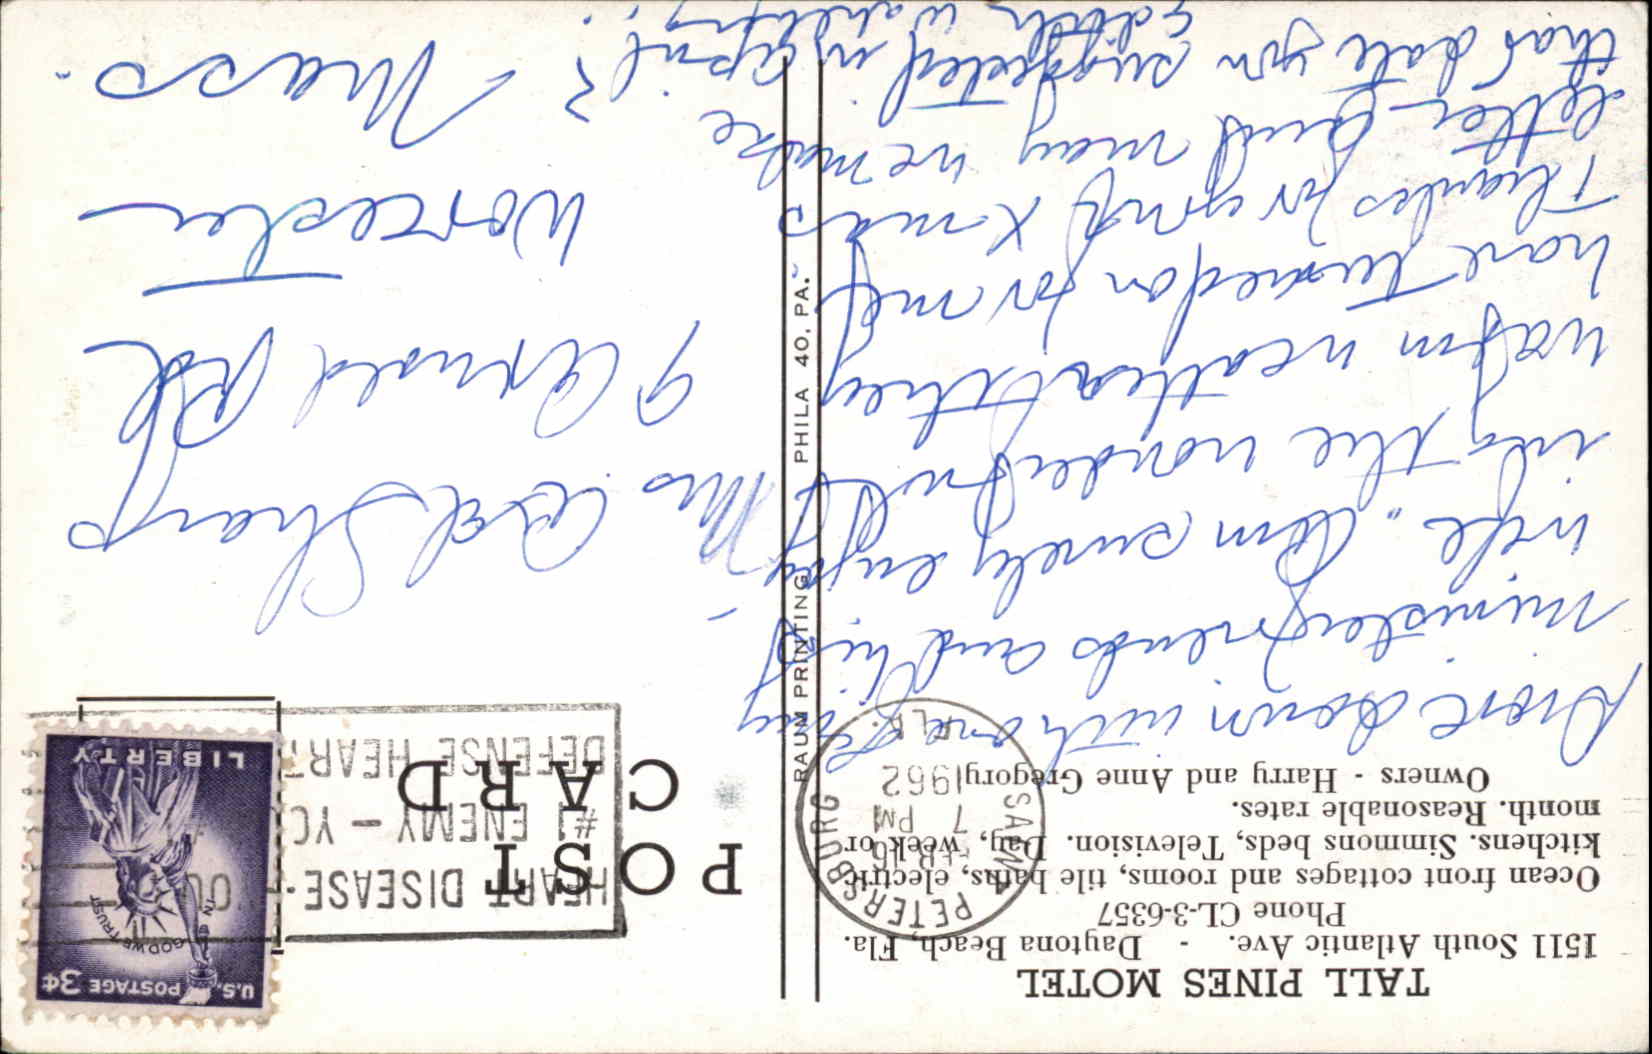 TALL PINES MOTEL
1511 South Atlantic Ave. - Daytona Beach, Fla.
Phone CL-3-6357
Ocean front cottages and rooms, tile baths, electric
kitchens. Simmons beds, Television. Day, week or
month. Reasonable rates.
Owners - Harry and Anne Gregory
Drove down with one of my
minister friends and his
wife. Am surely enjoy
ing the wonderful
warm weather they
have turned on for me.
Thanks for your Xmas
letter and may we make
that date you suggested in April?
POST
CARD
ST. PETERSBURG
FLA.
FEB 16
7 PM
1962
HEART DISEASE
#1 ENEMY —
DEFENSE HEART
U.S. POSTAGE 3¢
IN GOD WE TRUST
LIBERTY
RAUM PRINTING PHILA 40, PA.
Mrs Sharp
9 Arnold Rd
Worcester
Mass.